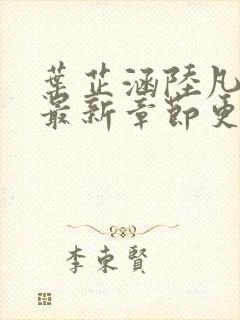 葉芷涵陸凡
最新章節更
李東賢